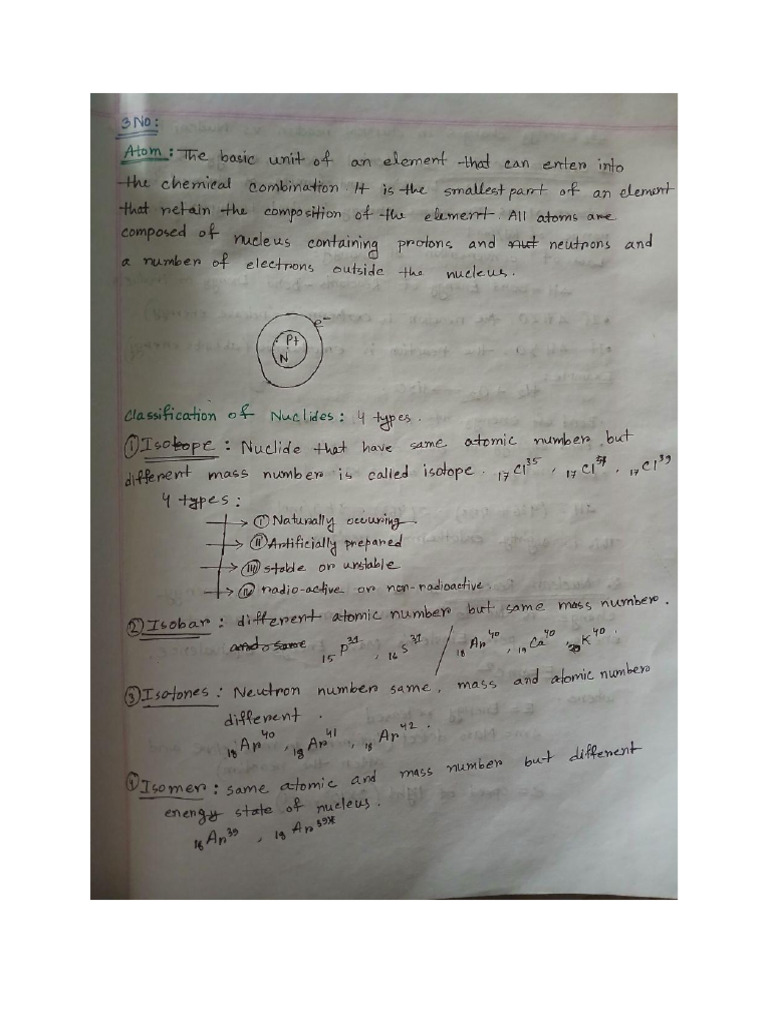 3 No:
Atom: The basic unit of an element that can enter into
the chemical combination. It is the smallest part of an element
that retain the composition of the element. All atoms are
composed of nucleus containing protons and nut neutrons and
a number of electrons outside the nucleus.
e⁻
P+
N
Classification of Nuclides: 4 types.
① Isotope: Nuclide that have same atomic number but
different mass number is called isotope. ₁₇Cl³⁵, ₁₇Cl, ₁₇Cl³⁹
4 types:
→ Ⓘ Naturally occuring
→ Ⅱ Artificially prepared
→ Ⅲ stable or unstable
→ Ⅳ radio-active or non-radioactive
② Isobar: different atomic number but same mass number.
and same ₁₅P³¹, ₁₆S³¹ / ₁₈Ar⁴⁰, ₁₉Ca⁴⁰, K⁴⁰.
③ Isotones: Neutron number same, mass and atomic number
different.
₁₈Ar⁴⁰, ₁₈Ar⁴¹, ₁₈Ar⁴².
④ Isomer: same atomic and mass number but different
energy state of nucleus.
₁₈Ar³⁹, ₁₈Ar³⁹*